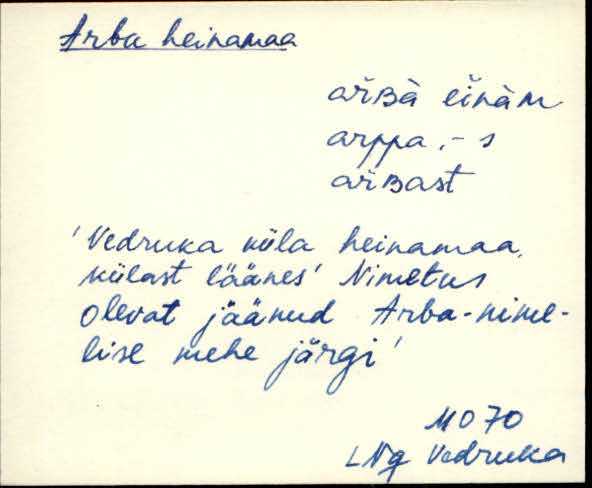 Arba heinamaa
ar̆ʙà eìnàm
arppa, -s
ar̆ʙast
'Vedruka küla heinamaa,
külast läänes' Nimetus
olevat jäänud Arba-nime-
lise mehe järgi'
MO 70
LNg Vedruka